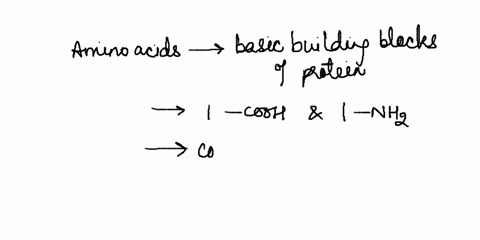 Amino acids → basic building blocks
of protein
→ 1 -COOH & 1 -NH2
→ co